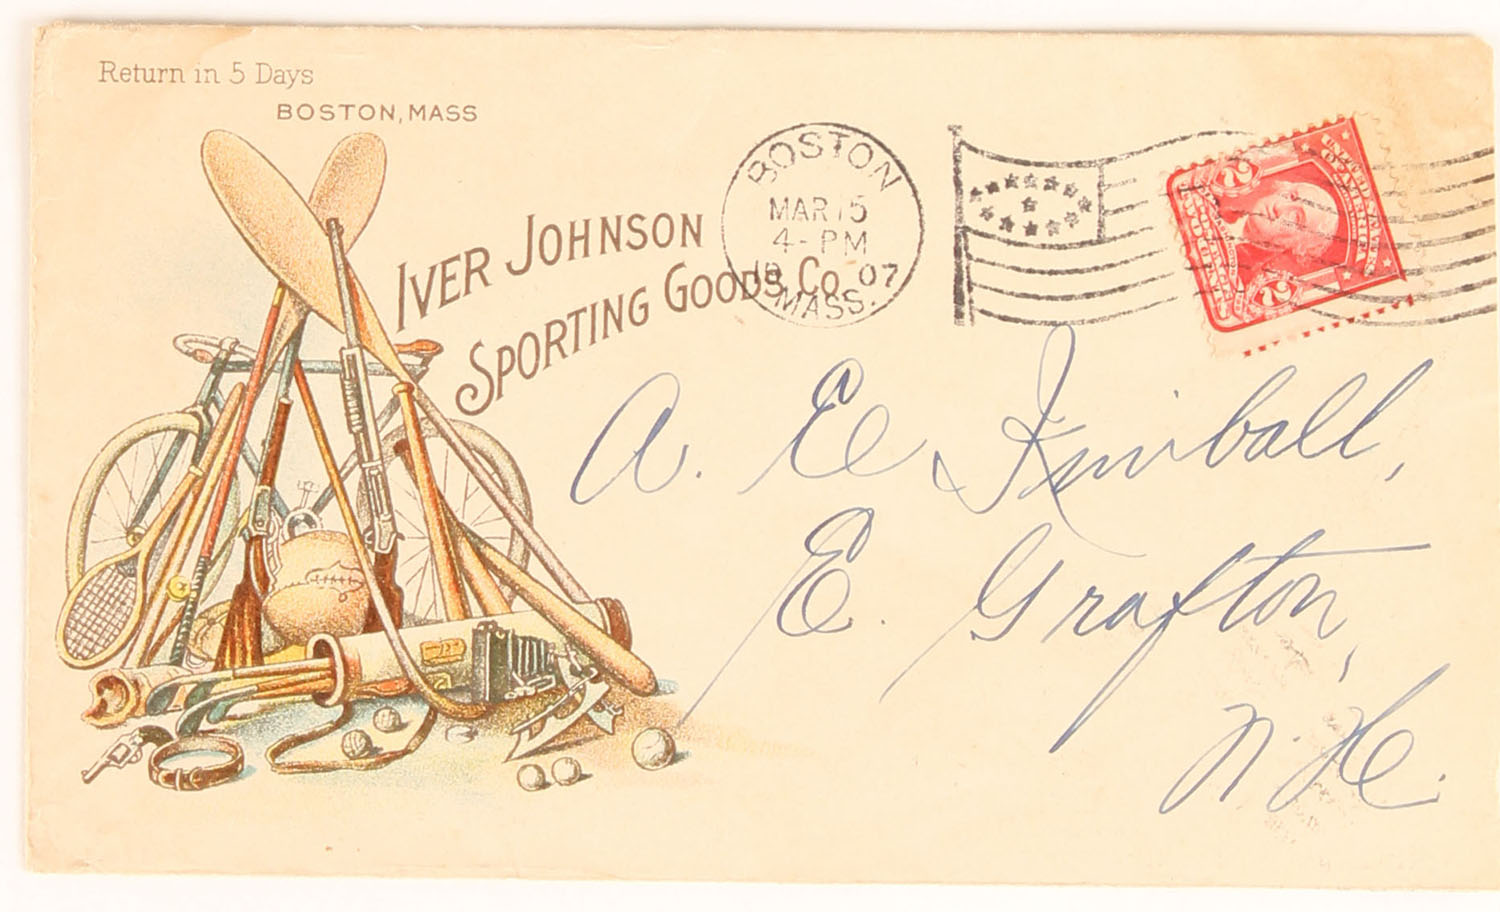 Return in 5 Days
BOSTON, MASS
IVER JOHNSON
SPORTING GOODS CO.
BOSTON
MAR 15
4-PM
19 07
MASS.
UNITED STATES
OF AMERICA
2 2
A. E. Kimball,
E. Grafton,
N. H.